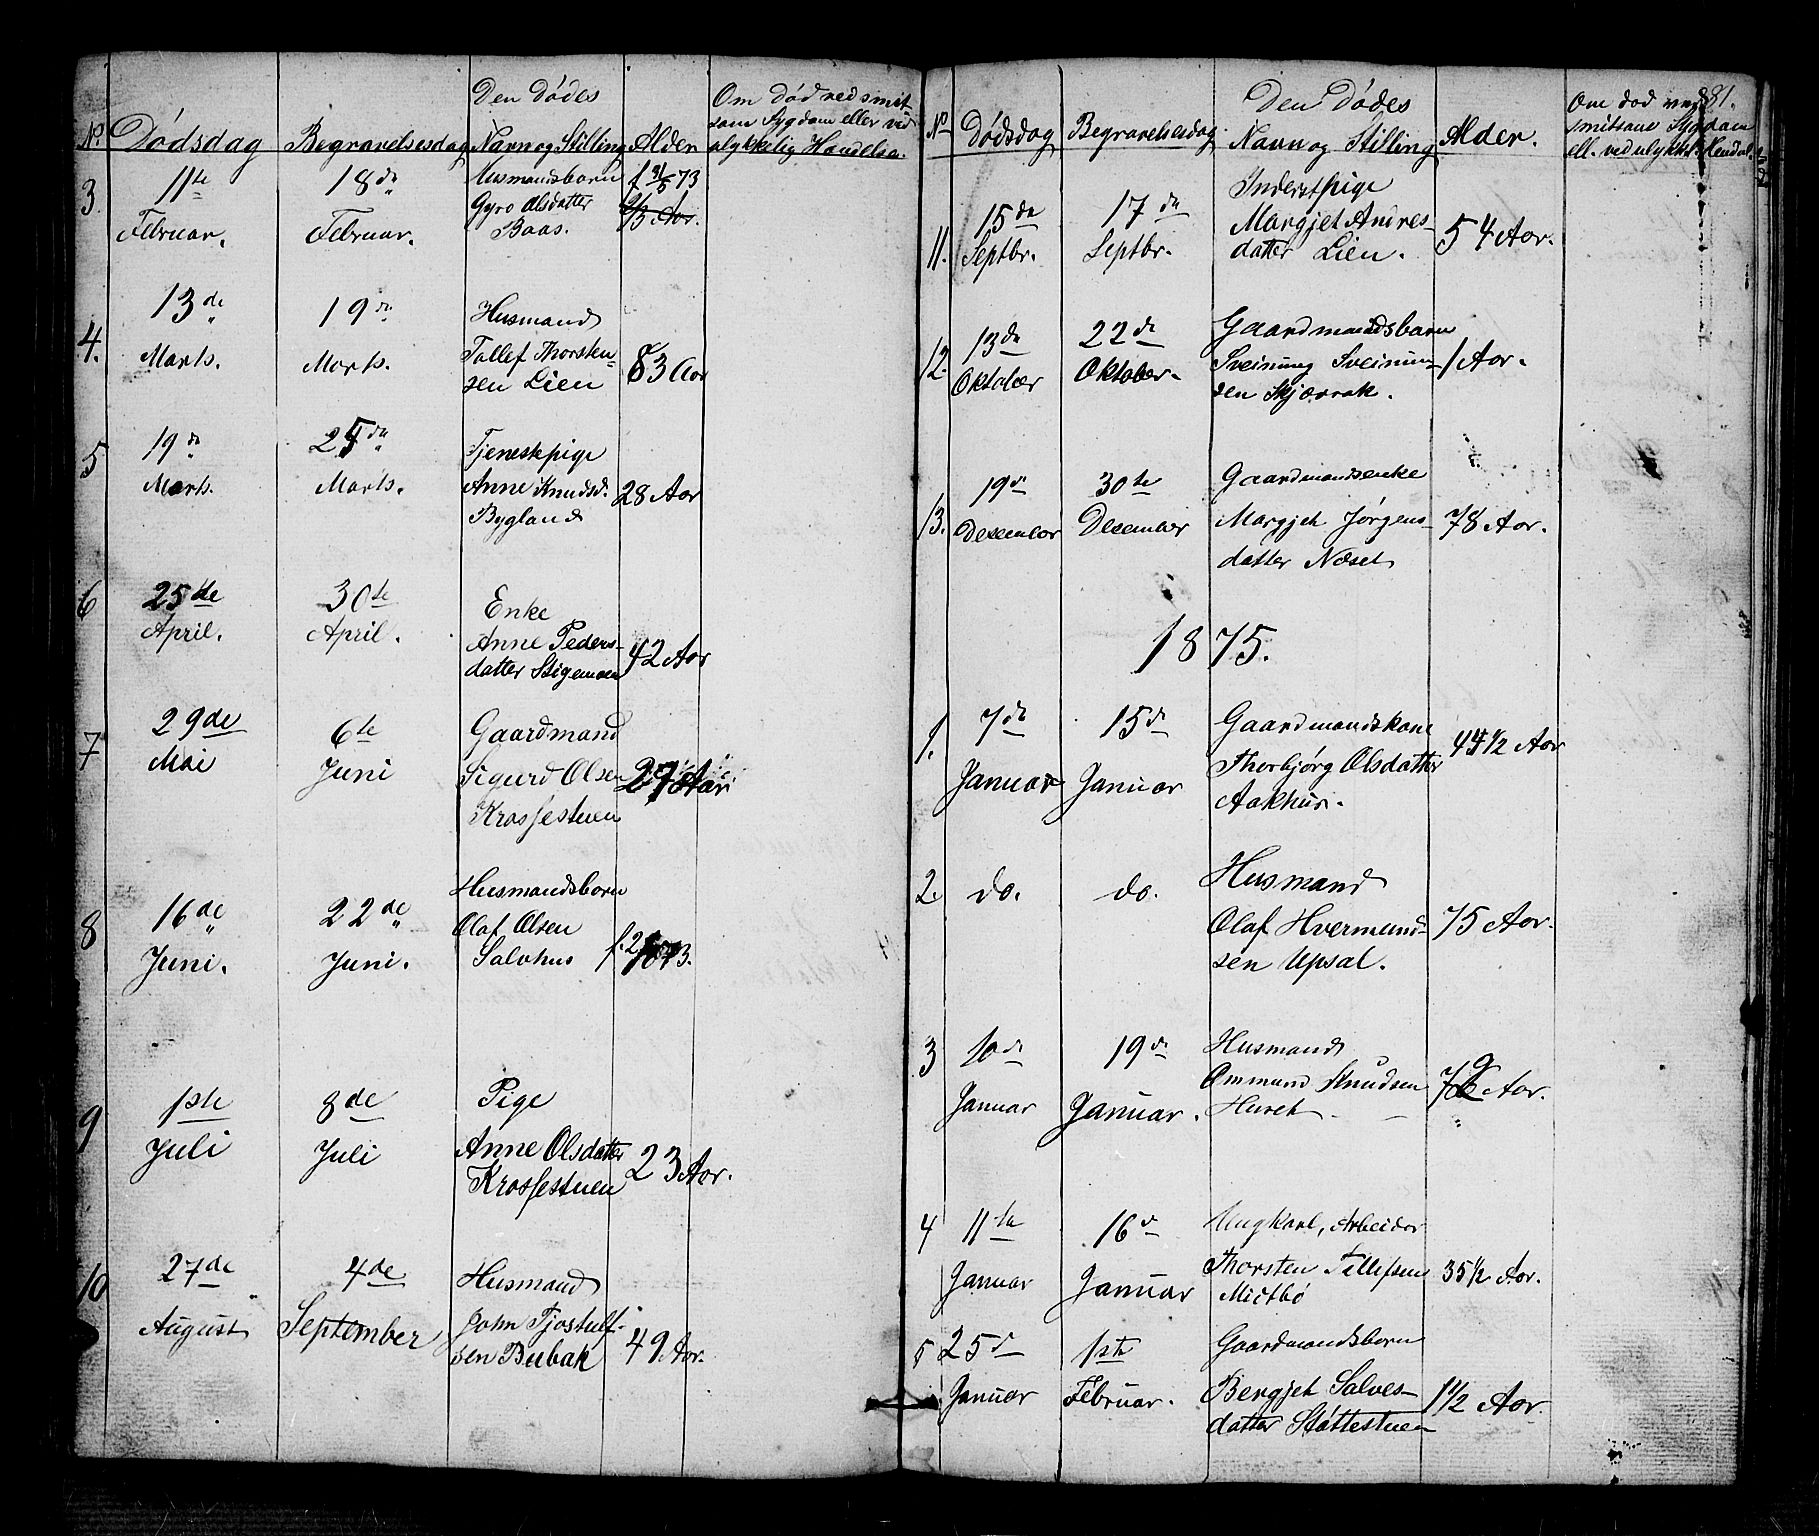 No. Dødsdag Begravelsesdag Den Dødes Navn og Stilling Alder Om død ved smitsom Sygdom eller ved ulykkelig Hændelse.
3. 11te Februar. 18de Februar. Husmandsbarn f 31/5 73
Gyro Olsdatter 2/3 Aar.
Baas.
4. 13de Marts. 19de Marts. Husmand
Tollef Thorsten-
sen Lien 83 Aar
5 19de Marts. 25de Marts. Tjenestpige
Anne Knudsd. 28 Aar
Bygland
6 25de April. 30te April. Enke
Anne Peders-
datter Stigemoen 42 Aar
7 29de Mai 6te Juni Gaardmand
Sigurd Olsen 27 Aar.
Krossestuen
8 16de Juni. 22de Juni. Husmandsbarn
Olaf Olsen
Salvhus
9 1ste Juli 8de Juli Pige
Anne Olsdatter
Krossestuen 23 Aar.
10 27de August 4de September Husmand
John Tjostulf-
sen Bubak 49 Aar.
81.
No. Dødsdag Begravelsesdag. Den Dødes Navn og Stilling Alder. Om død ved smitsom Sygdom ell. ved ulykkel. Hændel.
11. 15de Septbr. 17de Septbr. Inderstpige
Margjet Andres-
datter Lien. 54 Aar.
12. 13de Oktober 22de Oktober. Gaardmandsbarn
Sveinung Sveinun-
sen Skjævrak. 1 Aar.
13. 19de Desember 30te Desember Gaardmandsenke
Margjet Jørgens-
datter Næset 78 Aar.
1875.
1. 7de Januar 15de Januar Gaardmandskone
Thorbjørg Olsdatter
Aakhus. 44 1/2 Aar
2. do. do. Husmand
Olaf Hvermund-
sen Upsal. 75 Aar.
3 10de Januar 19de Januar. Husmand
Ommund Knudsen
Huset 79 Aar.
4 11te Januar 16de Januar Ungkarl, Arbeider
Thorsten Tellefsen
Midtbø 35 1/2 Aar.
5 25de Januar 1ste Februar. Gaardmandsbarn
Bergjet Salves-
datter Støttestuen 1 1/2 Aar.